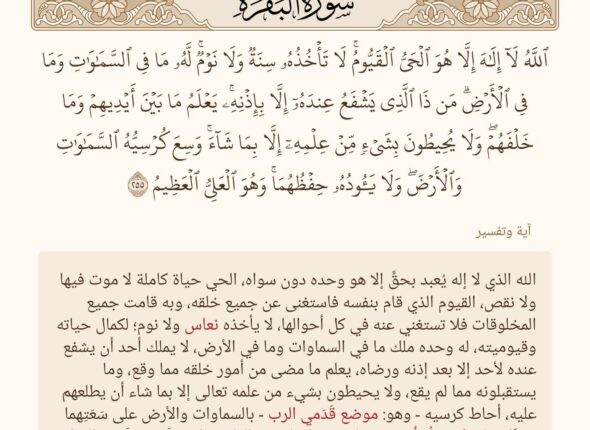 سورة البقرة
ٱللَّهُ لَآ إِلَٰهَ إِلَّا هُوَ ٱلْحَىُّ ٱلْقَيُّومُ ۚ لَا تَأْخُذُهُۥ سِنَةٌ وَلَا نَوْمٌ ۚ لَّهُۥ مَا فِى ٱلسَّمَٰوَٰتِ وَمَا
فِى ٱلْأَرْضِ ۗ مَن ذَا ٱلَّذِى يَشْفَعُ عِندَهُۥٓ إِلَّا بِإِذْنِهِۦ ۚ يَعْلَمُ مَا بَيْنَ أَيْدِيهِمْ وَمَا
خَلْفَهُمْ ۖ وَلَا يُحِيطُونَ بِشَىْءٍ مِّنْ عِلْمِهِۦٓ إِلَّا بِمَا شَآءَ ۚ وَسِعَ كُرْسِيُّهُ ٱلسَّمَٰوَٰتِ
وَٱلْأَرْضَ ۖ وَلَا يَـُٔودُهُۥ حِفْظُهُمَا ۚ وَهُوَ ٱلْعَلِىُّ ٱلْعَظِيمُ ٢٥٥
آية وتفسير
الله الذي لا إله يُعبد بحقٍّ إلا هو وحده دون سواه، الحي حياة كاملة لا موت فيها
ولا نقص، القيوم الذي قام بنفسه فاستغنى عن جميع خلقه، وبه قامت جميع
المخلوقات فلا تستغني عنه في كل أحوالها، لا يأخذه نعاس ولا نوم؛ لكمال حياته
وقيوميته، له وحده ملك ما في السماوات وما في الأرض، لا يملك أحد أن يشفع
عنده لأحد إلا بعد إذنه ورضاه، يعلم ما مضى من أمور خلقه مما وقع، وما
يستقبلونه مما لم يقع، ولا يحيطون بشيء من علمه تعالى إلا بما شاء أن يطلعهم
عليه، أحاط كرسيه - وهو: موضع قَدَمي الرب - بالسماوات والأرض على سَعَتِهما